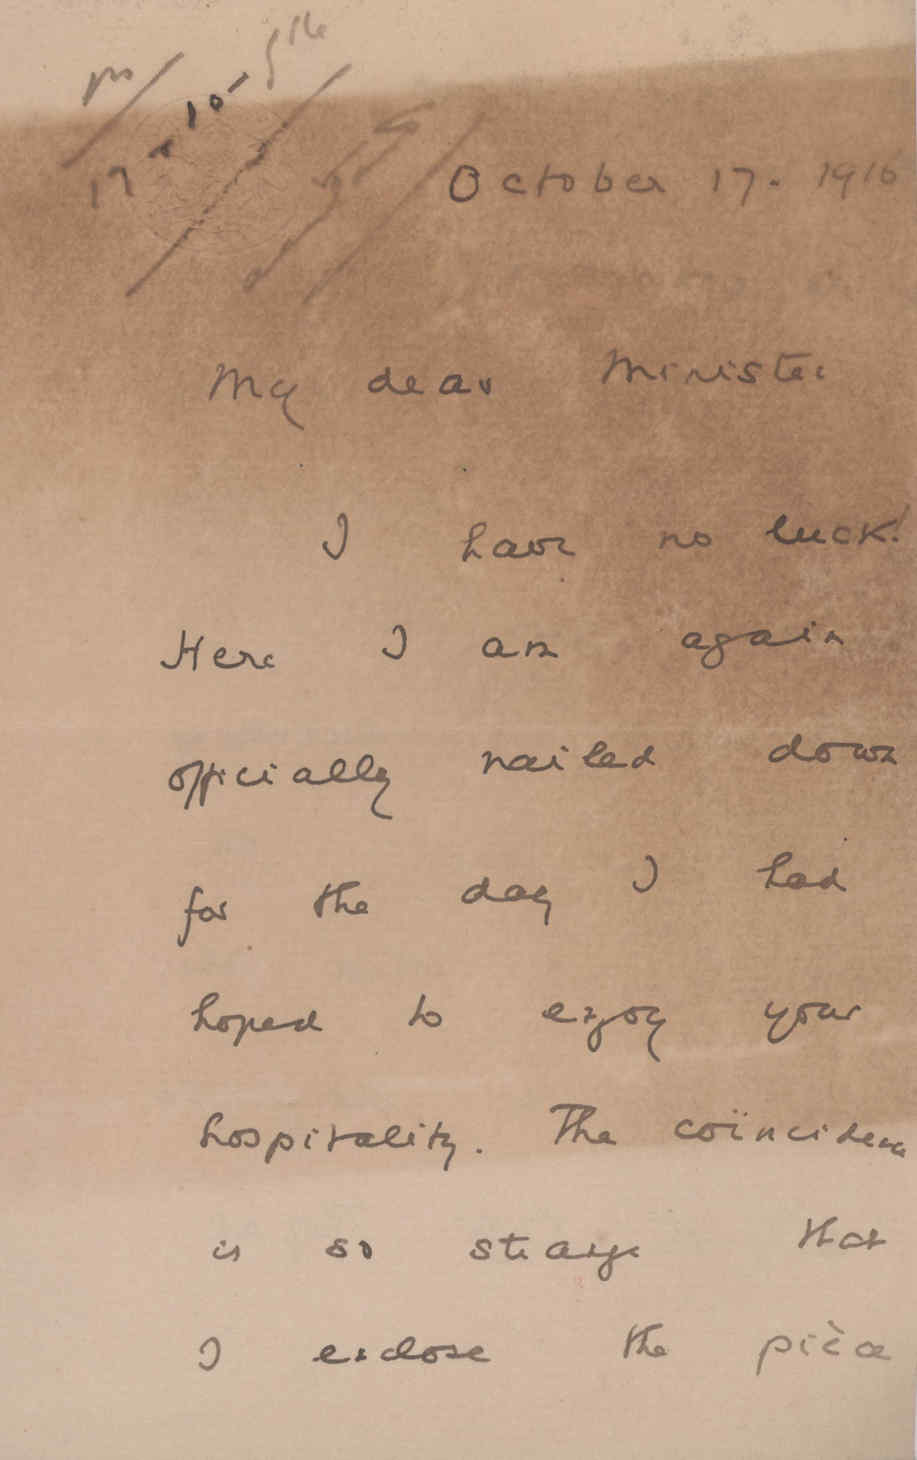 17-10-
October 17. 1916
My dear Minister
I have no luck!
Here I am again
officially nailed down
for the day I had
hoped to enjoy your
hospitality. The coïncidence
is so strange that
I enclose the pièce